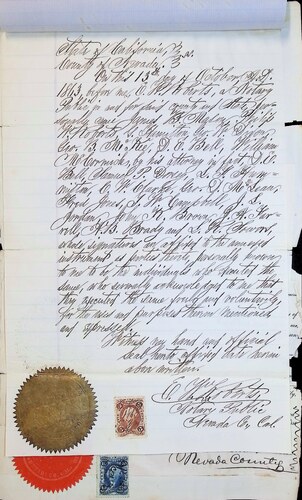 State of California, } ss.
County of Nevada. }
On this 13th day of October, A.D.
1863, before me, C. W. Roberts, a Notary
Public in and for said county and State, per-
sonally came James
W. Roberts, G. Hamilton, Geo. W. Dixon,
Geo. B. McKee, D. E. Bell, William
McCormick, by his attorney in fact D. E.
Bell, Samuel P. Dorsey,
C. W. Geo. D. McLean,
Jones, J. W. Campbell, J. L.
Jordan, John K. Brown,
A. B. Brady and L. W.
whose signatures are affixed to the annexed
instrument as parties thereto, personally known
to me to be the individuals who executed the
same, who severally acknowledged to me that
they executed the same freely and voluntarily
for the uses and purposes therein mentioned
and expressed.
Witness my hand and official
seal, hereto affixed date herein
above written.
C. W. Roberts,
Notary Public
Nevada Co. Cal.
Nevada County